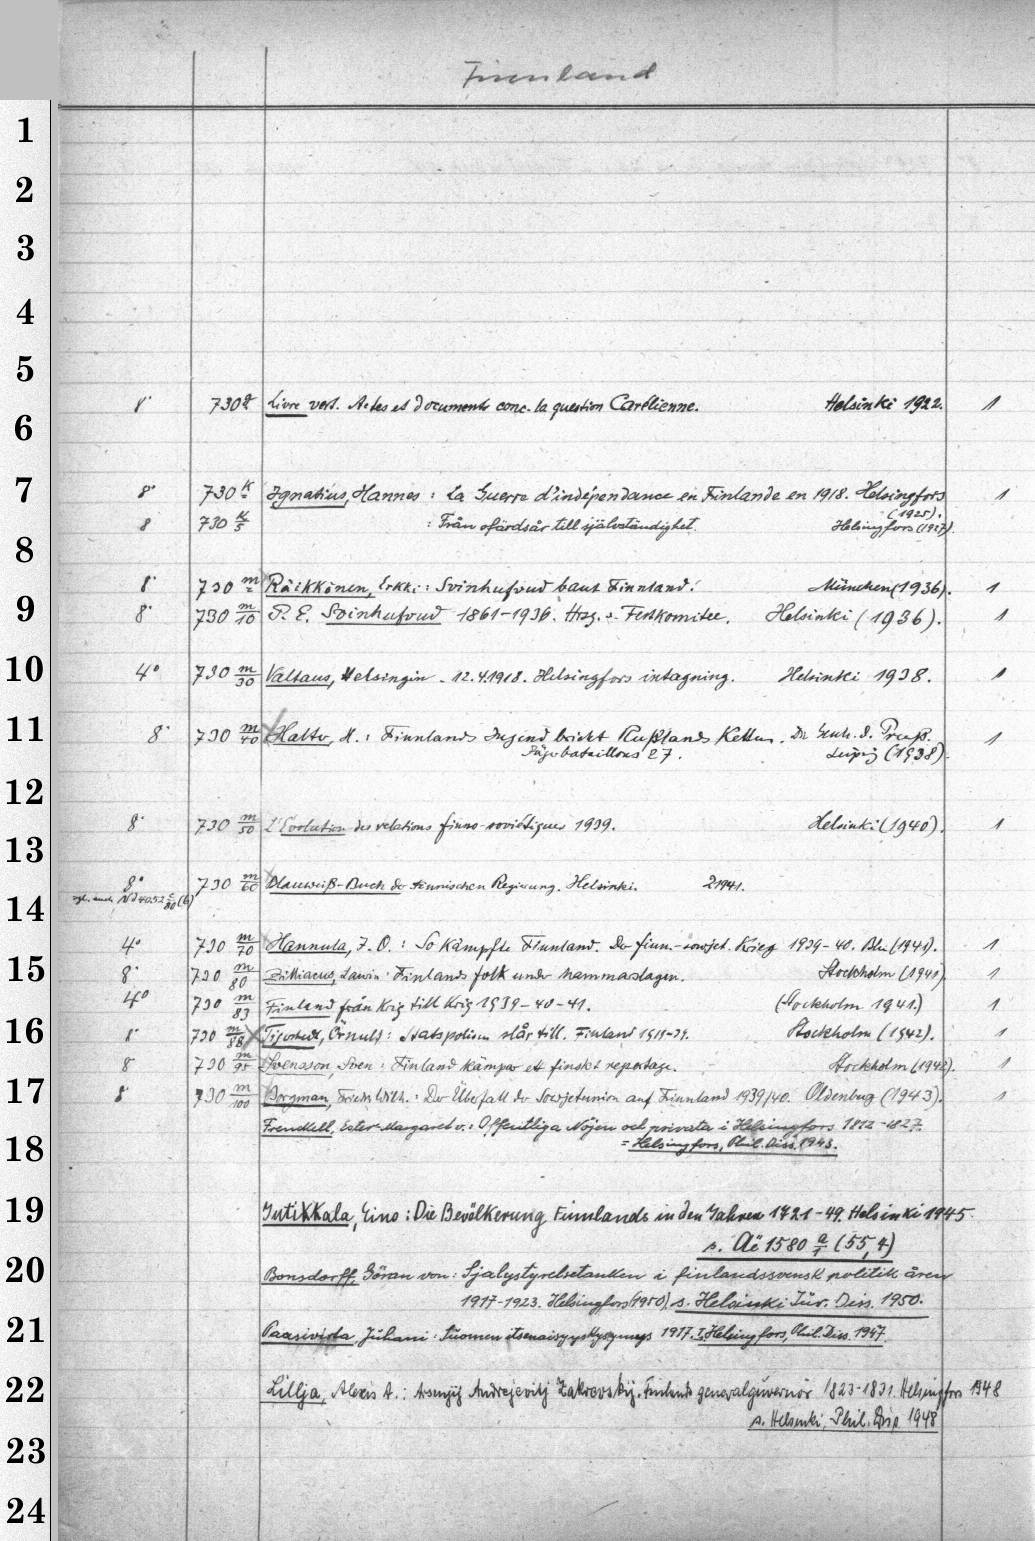 Finnland
1
2
3
4
5
8° 730 g Livre vert. Actes et documents conc. la question Carélienne. Helsinki 1922. 1
6
7 8° 730 K Ignatius, Hannes : La Guerre d'indépendance en Finlande en 1918. Helsingfors 1
(1925).
8 730 K/5 : Från ofärdsår till självständighet. Helsingfors (1927).
8
8° 730 m Räikkönen, Erkki : Svinhufvud baut Finnland. München (1936). 1
9 8° 730 m/10 P. E. Svinhufvud 1861-1936. Hrsg. v. Festkomitee. Helsinki (1936). 1
10 4° 730 m/30 Valtaus, Helsingin - 12.4.1918. Helsingfors intagning. Helsinki 1938. 1
11 8° 730 m/40 Halto, H. : Finnlands Jugend bricht Rußlands Ketten. Preuß. 1
Jägerbataillons 27. Leipzig (1938).
12
8° 730 m/50 L'Evolution des relations finno-soviétiques 1939. Helsinki (1940). 1
13
8° 730 m/60 Blauweiß-Buch der Finnischen Regierung. Helsinki. 2 1941.
14 vgl. auch
4° 730 m/70 Hannula, J. O. : So kämpfte Finnland. Der finn.-sowjet. Krieg 1939-40. Bln (1941). 1
15 8° 730 m/80 Zilliacus, Laurin : Finlands folk under hammarslagen. Stockholm (1941). 1
4° 730 m/83 Finland från krig till krig 1939-40-41. (Stockholm 1941.) 1
16 8° 730 m/88 Örnulf : Statspolisen slår till. Finland Stockholm (1942). 1
8 730 m/95 Svensson, Sven : Finland kämpar ett finskt reportage. Stockholm (1942). 1
17 8° 730 m/100 Borgman, Friedr. Wilh. : Der Überfall der Sowjetunion auf Finnland 1939/40. Oldenburg (1943). 1
Frenckell, Ester Margaret v. : Offentliga Nöjen och privata i Helsingfors 1812-1827.
18 = Helsingfors, Phil. Diss. 1943.
19 Jutikkala, Eino : Die Bevölkerung Finnlands in den Jahren 1721-49. Helsinki 1945.
s. Aë 1580 a/r (55,4)
20 Bonsdorff, Göran von : Sjalvstyrelsetanken i finlandssvensk politik åren
1917-1923. Helsingfors (1950) s. Helsinki Jur. Diss. 1950.
21 Paasivirta, Juhani : Suomen itsenaisyyskysymys 1917. I. Helsingfors, Phil. Diss. 1947
22 Lillja, Alexis A. : Arsenij Andrejevitj Zakrevskij. Finlands generalguvernör 1823-1831. Helsingfors 1948
s. Helsinki, Phil. Diss. 1948
23
24